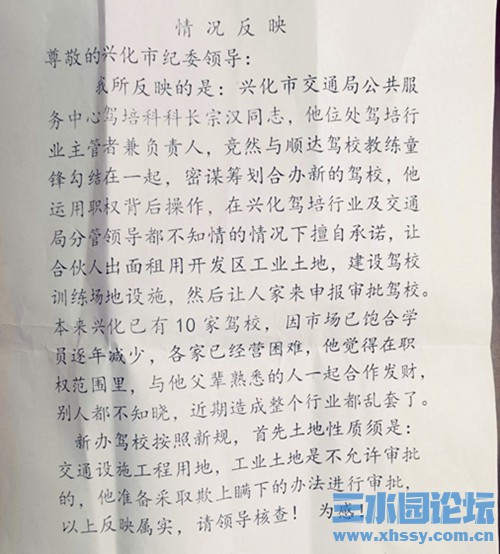 情况反映
尊敬的兴化市纪委领导：
我所反映的是：兴化市交通局公共服
务中心驾培科科长宗汉同志，他位处驾培行
业主管者兼负责人，竟然与顺达驾校教练童
锋勾结在一起，密谋筹划合办新的驾校，他
运用职权背后操作，在兴化驾培行业及交通
局分管领导都不知情的情况下擅自承诺，让
合伙人出面租用开发区工业土地，建设驾校
训练场地设施，然后让人家来申报审批驾校。
本来兴化已有10家驾校，因市场已饱合学
员逐年减少，各家已经营困难，他觉得在职
权范围里，与他父辈熟悉的人一起合作发财，
别人都不知晓，近期造成整个行业都乱套了。
新办驾校按照新规，首先土地性质须是：
交通设施工程用地，工业土地是不允许审批
的，他准备采取欺上瞒下的办法进行审批，
以上反映属实，请领导核查！为感！
三水园论坛
www.xhssy.com